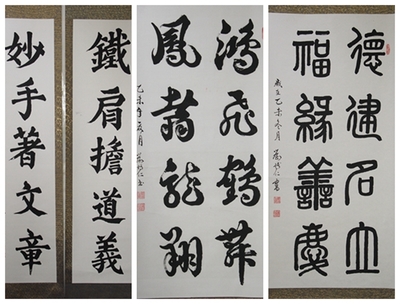 鐵肩擔道義
妙手著文章
鴻飛鶴舞
鳳翥龍翔
乙未年冬月
德建名立
福緣善慶
歲在乙未冬月